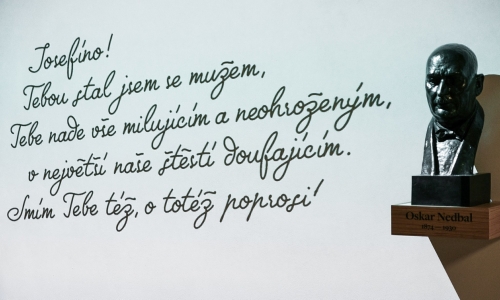 Josefíno!
Tebou stal jsem se mužem,
Tebe nade vše milujícím a neohroženým,
v největší naše štěstí doufajícím.
Smím Tebe též, o totéž poprosi!
Oskar Nedbal
1874 — 1930